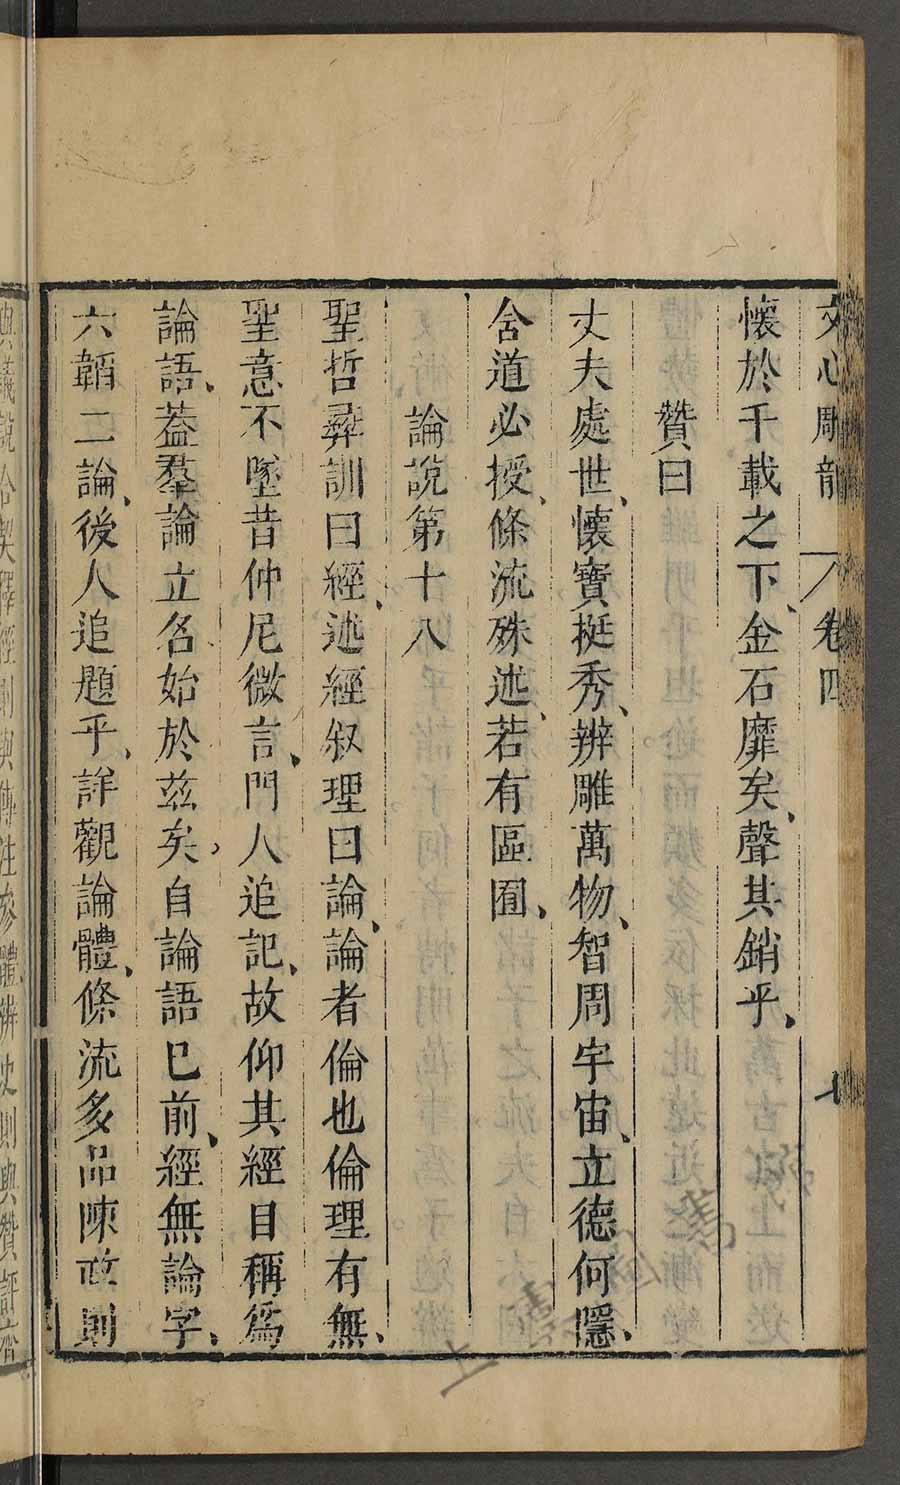 文心雕龍 卷四 七
懷於千載之下、金石靡矣、聲其銷乎、
贊曰
丈夫處世、懷寶挺秀、辨雕萬物、智周宇宙、立德何隱、
含道必授、條流殊述、若有區囿、
論說第十八
聖哲彛訓曰經、述經叙理曰論、論者倫也倫理有無、
聖意不墜昔仲尼微言、門人追記、故仰其經目稱爲
論語、葢羣論立名始於茲矣、自論語已前、經無論字、
六韜二論、後人追題乎、詳觀論體、條流多品陳政則
與議說合契釋經則與傳注參體辨史則與贊評齊